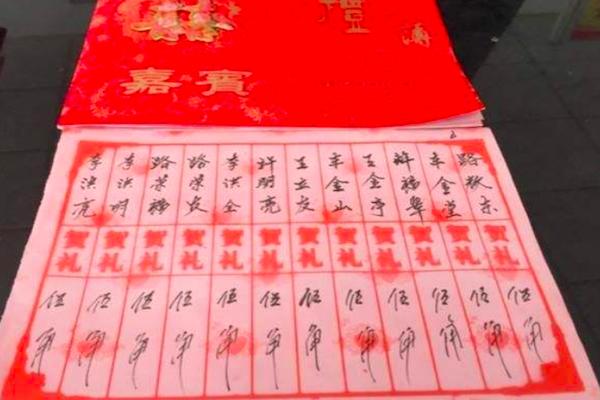 嘉賓
禮薄
路敬东 贺礼 伍角
车金堂 贺礼 伍角
福 贺礼 伍角
王金亭 贺礼 伍角
车金山 贺礼 伍角
王立友 贺礼 伍角
许明亮 贺礼 伍角
李洪全 贺礼 伍角
路荣 贺礼 伍角
路荣福 贺礼 伍角
李洪明 贺礼 伍角
李洪亮 贺礼 伍角